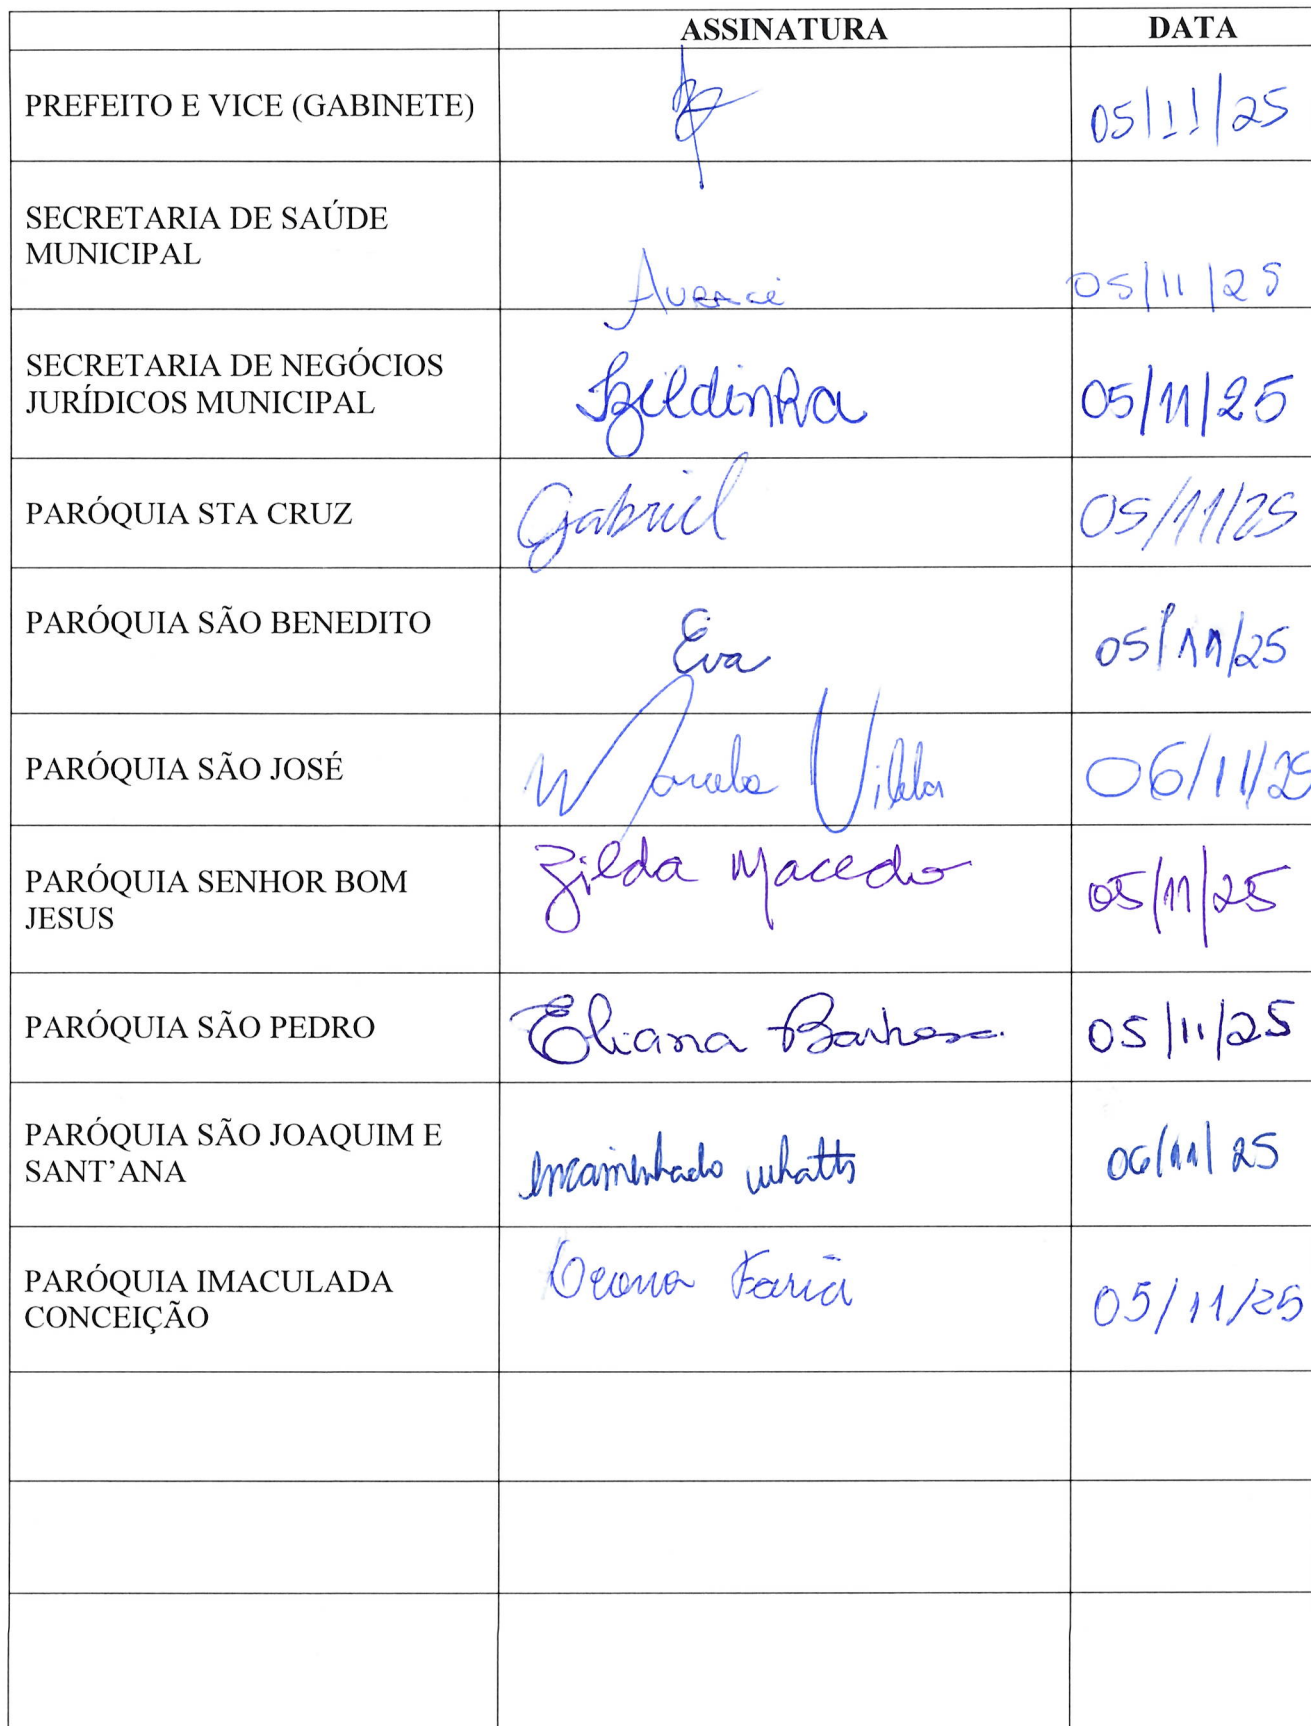 ASSINATURA DATA
PREFEITO E VICE (GABINETE) 05/11/25
SECRETARIA DE SAÚDE
MUNICIPAL
05/11/25
SECRETARIA DE NEGÓCIOS
JURÍDICOS MUNICIPAL
Izildinha 05/11/25
PARÓQUIA STA CRUZ Gabriel 05/11/25
PARÓQUIA SÃO BENEDITO Eva 05/11/25
PARÓQUIA SÃO JOSÉ Vilela 06/11/25
PARÓQUIA SENHOR BOM
JESUS
Zilda Macedo 05/11/25
PARÓQUIA SÃO PEDRO Eliana Barbosa 05/11/25
PARÓQUIA SÃO JOAQUIM E
SANT’ANA
encaminhado whatts 06/11/25
PARÓQUIA IMACULADA
CONCEIÇÃO
Faria 05/11/25